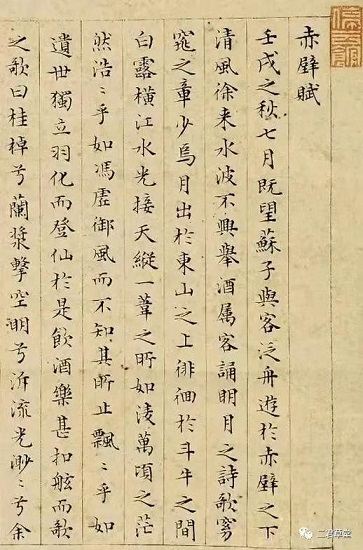 赤壁賦
壬戌之秋七月既望蘇子與客泛舟遊於赤壁之下
清風徐来水波不興舉酒属客誦明月之詩歌窈
窕之章少焉月出於東山之上徘徊於斗牛之間
白露横江水光接天縱一葦之所如淩萬頃之茫
然浩〻乎如馮虛御風而不知其所止飄〻乎如
遺世獨立羽化而登仙於是飲酒樂甚扣舷而歌
之歌曰桂棹兮蘭槳擊空明兮泝流光渺〻兮余